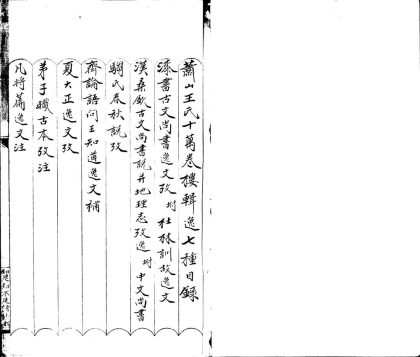 蕭山王氏十萬卷樓輯逸七種目錄
漆書古文尚書逸文攷附杜林訓故逸文
漢桑欽古文尚書説并地理志攷逸附中文尚書
騶氏春秋説攷
齊論語問王知道逸文補
夏大正逸文攷
弟子職古本攷注
凡將篇逸文注